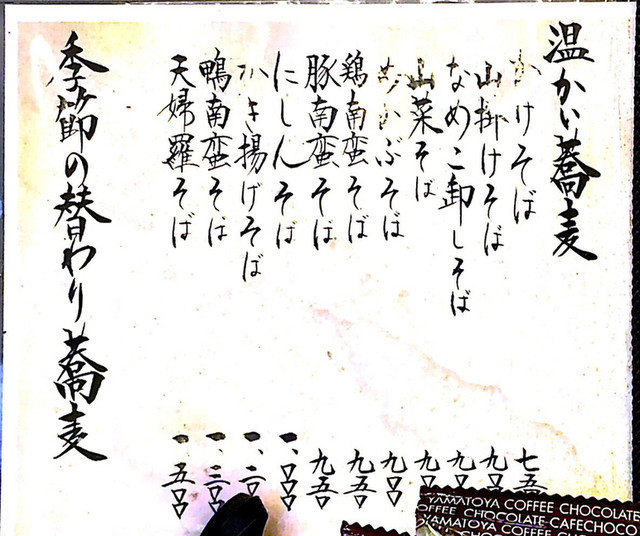 温かい蕎麦
かけそば 七五
山掛けそば 九〇
なめこ卸しそば 九〇
山菜そば 九〇
めかぶそば 九〇〇
鶏南蛮そば 九五〇
豚南蛮そば 九五〇
にしんそば 一、〇〇〇
かき揚げそば 一、二〇
鴨南蛮そば 一、三〇〇
天婦羅そば 一、五〇〇
季節の替わり蕎麦
YAMATOYA COFFEE CHOCOLATE
OFFEE CHOCOLATE CAFECHOCO
YAMATOYA COFFEE CHOCO